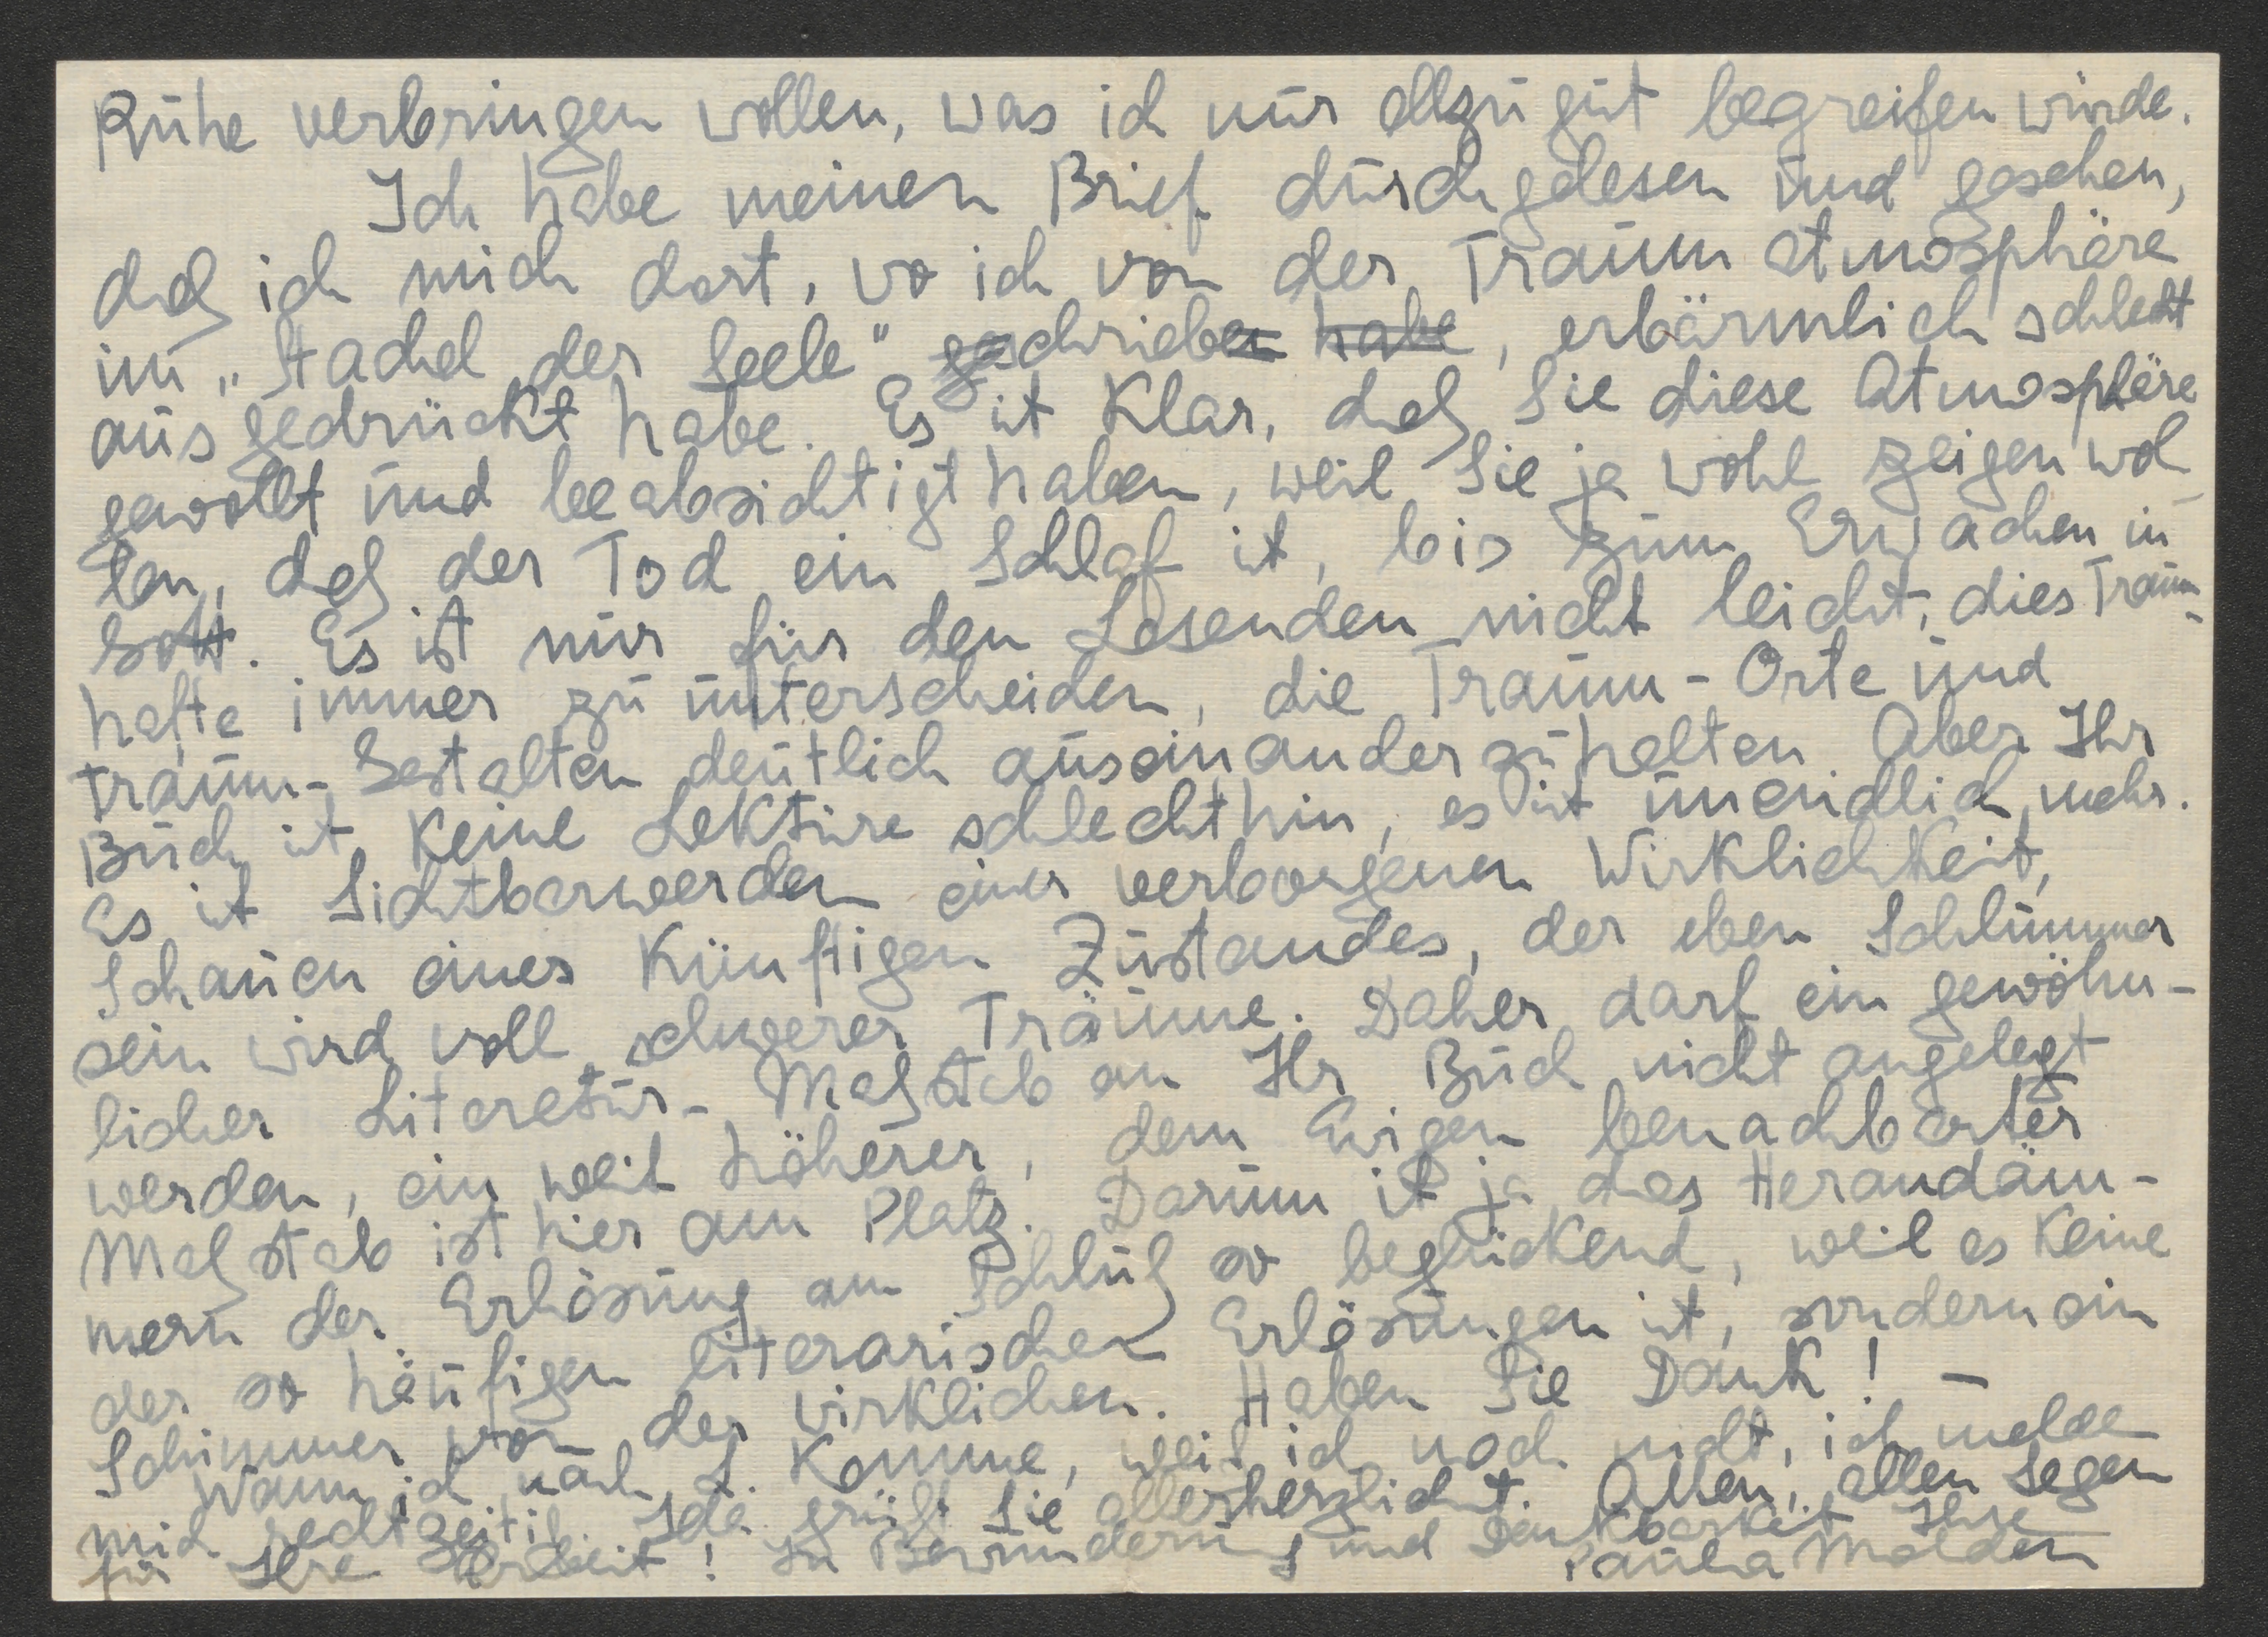 Ruhe verbringen wollen, was ich nur allzu gut begreifen würde.
Ich habe meinen Brief durchgelesen und gesehen,
daß ich mich dort, wo ich von der Traumatmosphäre
im „Stachel der Seele" geschrieben habe, erbärmlich schlecht
ausgedrückt habe. Es ist klar, daß Sie diese Atmosphäre
gewollt und beabsichtigt haben, weil Sie ja wohl zeigen wol-
len, daß der Tod ein Schlaf ist, bis zum Erwachen in
Gott. Es ist nur für den Lesenden nicht leicht, dies Traum-
hafte immer zu unterscheiden, die Traum-Orte und
Traum-Gestalten deutlich auseinanderzuhalten. Aber Ihr
Buch ist keine Lektüre schlechthin, es ist unendlich mehr.
Es ist Sichtbarwerden einer verborgenen Wirklichkeit,
Schauen eines künftigen Zustandes, der eben Schlummer
sein wird voll schwerer Träume. Daher darf ein gewöhn-
licher Literatur-Maßstab an Ihr Buch nicht angelegt
werden, ein weit höherer, dem Ewigen benachbarter
Maßstab ist hier am Platz. Darum ist ja das Herandäm-
mern der Erlösung am Schluß so beglückend, weil es keine
der so häufigen literarischen Erlösungen ist, sondern ein
Schimmer von der wirklichen. Haben Sie Dank! –
Wann ich nach L. komme, weiß ich noch nicht, ich melde
mich rechtzeitig. Ida grüßt Sie allerherzlichst. Allen, allen Segen
für Ihre Arbeit! In Bewunderung und Dankbarkeit Ihre
Paula Molden